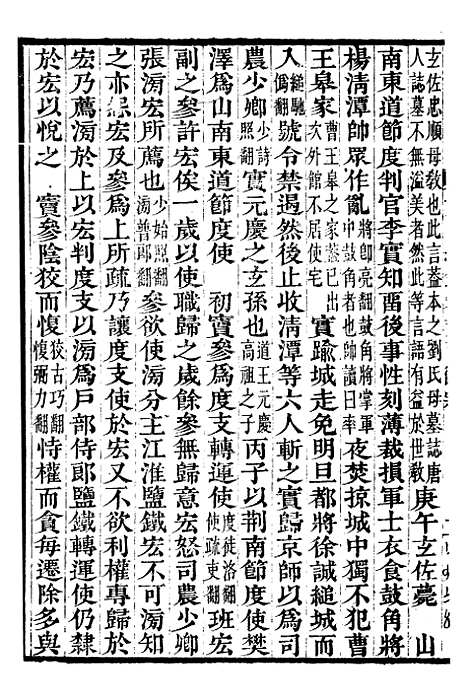 玄佐忠順母敎也此言蓋本之劉氏母墓誌唐人誌墓不無溢美者然此有益於世敎庚午玄佐薨　山
南東道節度判官李實知畱後事性刻薄裁損軍士衣食鼓角將
楊清潭帥眾作亂將卽亮翻鼓角將中鼓角者也帥讀曰率夜焚掠城中獨不犯曹
王皋家曹王皋之家蓋已出次外館不居使宅　實踰城走免明旦都將徐誠縋城而
入縋馳僞翻號令禁遏然後止收淸潭等六人斬之實歸京師以爲司
農少卿少詩照翻實元慶之玄孫也道王元慶高祖之子丙子以荆南節度使樊
澤爲山南東道節度使　初竇參爲度支轉運使度徒洛翻使疏吏翻班宏
副之參許宏俟一歲以使職歸之歲餘參無歸意宏怒司農少卿
張滂宏所薦也少始照翻滂普郎翻參欲使滂分主江淮鹽鐵宏不可滂知
之亦怨宏及參爲上所疏乃讓度支使於宏又不欲利權專歸於
宏乃薦滂於上以宏判度支以滂爲戶部侍郎鹽鐵轉運使仍隸
於宏以悅之　竇參陰狡而愎狡古巧翻愎弼力翻恃權而貪每遷除多與